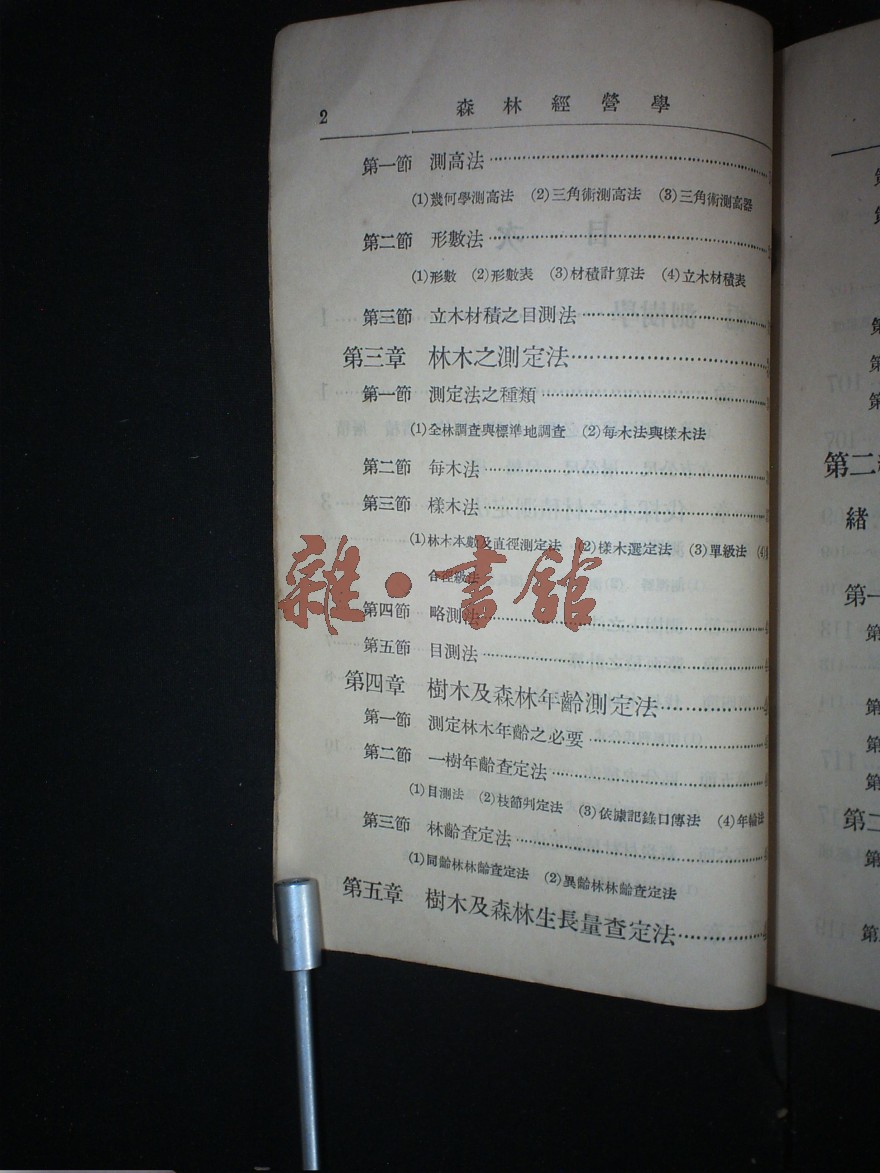 2
森林經營學
第一節 測高法
(1)幾何學測高法 (2)三角術測高法 (3)三角術測高器
第二節 形數法
(1)形數 (2)形數表 (3)材積計算法 (4)立木材積表
第三節 立木材積之目測法
第三章 林木之測定法
第一節 測定法之種類
(1)全林調查與標準地調查 (2)每木法與樣木法
第二節 每木法
第三節 樣木法
(1)林木本數及直徑測定法 (2)樣木選定法 (3)單級法 (4)
合徑級法
第四節 略測法
第五節 目測法
第四章 樹木及森林年齡測定法
第一節 測定林木年齡之必要
第二節 一樹年齡查定法
(1)目測法 (2)枝節判定法 (3)依據記錄口傳法 (4)年輪法
第三節 林齡查定法
(1)同齡林林齡查定法 (2)異齡林林齡查定法
第五章 樹木及森林生長量查定法
雜·書館
第二
緒
第一
第
第
第
第
第二
第
第